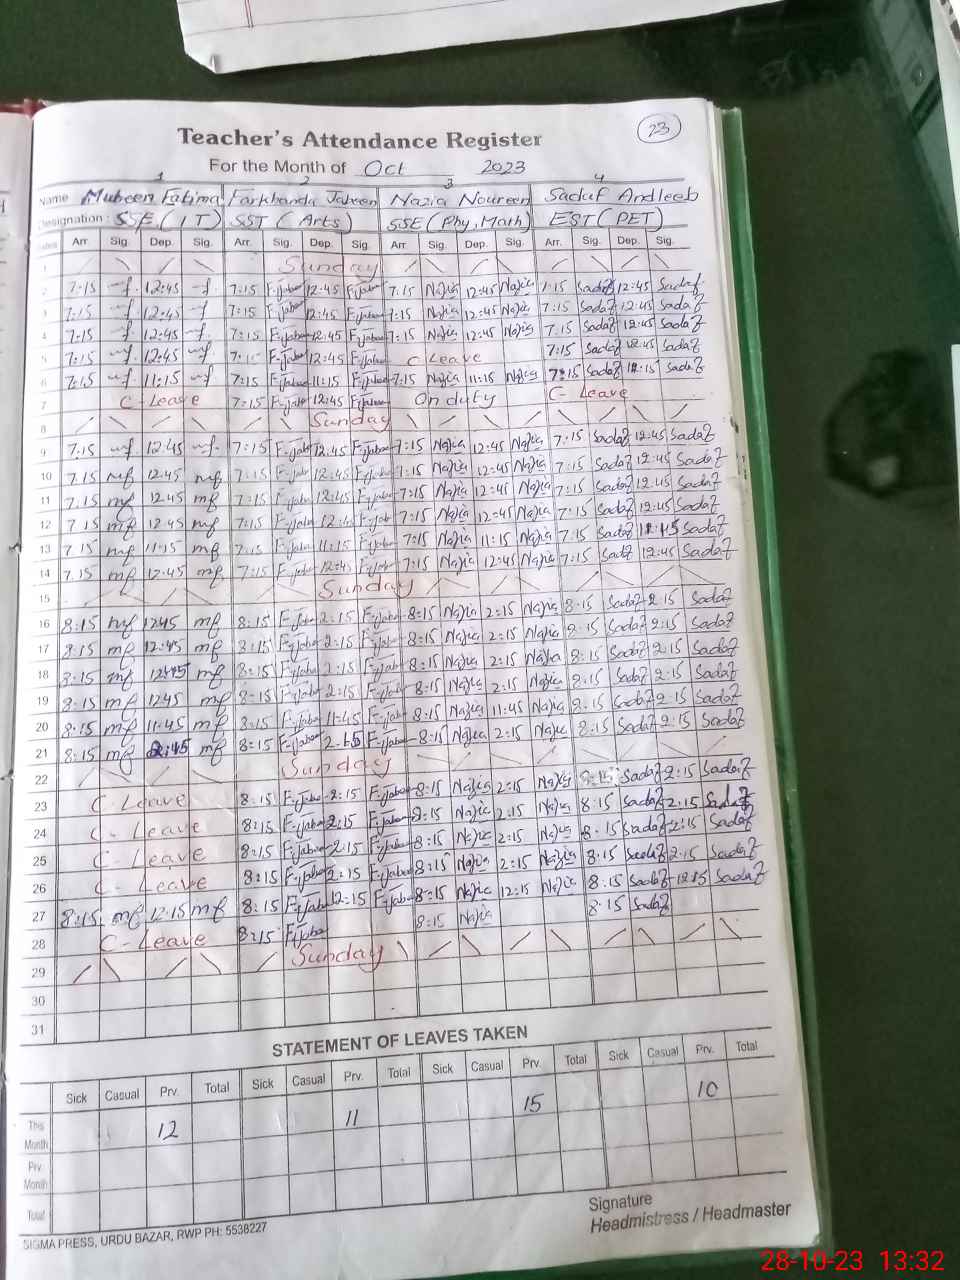 23
Teacher's Attendance Register
For the Month of Oct 2023
1 2 3 4
Name Mubeen Fatima Farkhanda Jabeen Nazia Noureen Sadaf Andleeb
Designation : S.S.E.(IT) SST (Arts) SSE (Phy, Math) EST (PET)
Dates Arr. Sig. Dep. Sig. Arr. Sig. Dep. Sig. Arr. Sig. Dep. Sig. Arr. Sig. Dep. Sig.
1 Sunday
2 7:15 mf. 12:45 mf 7:15 F-jabeen 12:45 F-jabeen 7:15 Nazia 12:45 Nazia 7:15 Sadaf 12:45 Sadaf
3 7:15 mf 12:45 mf 7:15 F-jabeen 12:45 F-jabeen 7:15 Nazia 12:45 Nazia 7:15 Sadaf 12:45 Sadaf
4 7:15 mf 12:45 mf. 7:15 F-jabeen 12:45 F-jabeen 7:15 Nazia 12:45 Nazia 7:15 Sadaf 12:45 Sadaf
5 7:15 mf 12:45 mf. 7:15 F-jabeen 12:45 F-jabeen C Leave 7:15 Sadaf 12:45 Sadaf
6 7:15 mf 11:15 mf 7:15 F-jabeen 11:15 F-jabeen 7:15 Nazia 11:15 Nazia 7:15 Sadaf 11:15 Sadaf
7 C-Leave 7:15 F-jabeen 12:45 F-jabeen On duty C- Leave
8 Sunday
9 7.15 mf 12.45 mf. 7:15 F-jabeen 12:45 F-jabeen 7:15 Nazia 12:45 Nazia 7:15 Sadaf 12:45 Sadaf
10 7.15 mf 12.45 mf 7:15 F-jabeen 12:45 F-jabeen 7:15 Nazia 12:45 Nazia 7:15 Sadaf 12:45 Sadaf
11 7.15 mf 12.45 mf 7:15 F-jabeen 12:45 F-jabeen 7:15 Nazia 12:45 Nazia 7:15 Sadaf 12:45 Sadaf
12 7.15 mf 12.45 mf 7:15 F-jabeen 12:45 F-jabeen 7:15 Nazia 12:45 Nazia 7:15 Sadaf 12:45 Sadaf
13 7.15 mf 11:15 mf 7:15 F-jabeen 11:15 F-jabeen 7:15 Nazia 11:15 Nazia 7:15 Sadaf 11:15 Sadaf
14 7.15 mf 12.45 mf 7:15 F-jabeen 12:45 F-jabeen 7:15 Nazia 12:45 Nazia 7:15 Sadaf 12:45 Sadaf
15 Sunday
16 8:15 mf 12.45 mf 8:15 F-jabeen 2:15 F-jabeen 8:15 Nazia 2:15 Nazia 8:15 Sadaf 2:15 Sadaf
17 8:15 mf 12:45 mf 8:15 F-jabeen 2:15 F-jabeen 8:15 Nazia 2:15 Nazia 8:15 Sadaf 2:15 Sadaf
18 8:15 mf 12:45 mf 8:15 F-jabeen 2:15 F-jabeen 8:15 Nazia 2:15 Nazia 8:15 Sadaf 2:15 Sadaf
19 8:15 mf 12.45 mf 8:15 F-jabeen 2:15 F-jabeen 8:15 Nazia 2:15 Nazia 8:15 Sadaf 2:15 Sadaf
20 8:15 mf 11:45 mf 8:15 F-jabeen 11:45 F-jabeen 8:15 Nazia 11:45 Nazia 8:15 Sadaf 2:15 Sadaf
21 8:15 mf 2:45 mf 8:15 F-jabeen 2:15 F-jabeen 8:15 Nazia 2:15 Nazia 8:15 Sadaf 2:15 Sadaf
22 Sunday
23 C-Leave 8:15 F-jabeen 2:15 F-jabeen 8:15 Nazia 2:15 Nazia 8:15 Sadaf 2:15 Sadaf
24 C- Leave 8:15 F-jabeen 2:15 F-jabeen 8:15 Nazia 2:15 Nazia 8:15 Sadaf 2:15 Sadaf
25 C- Leave 8:15 F-jabeen 2:15 F-jabeen 8:15 Nazia 2:15 Nazia 8:15 Sadaf 2:15 Sadaf
26 C- Leave 8:15 F-jabeen 2:15 F-jabeen 8:15 Nazia 2:15 Nazia 8:15 Sadaf 2:15 Sadaf
27 8:15 mf 12.15 mf 8:15 F-jabeen 12:15 F-jabeen 8:15 Nazia 12:15 Nazia 8:15 Sadaf 12:15 Sadaf
28 C-Leave 8:15 F-jabeen 8:15 Nazia 8:15 Sadaf
29 Sunday
30
31
STATEMENT OF LEAVES TAKEN
Sick Casual Prv. Total Sick Casual Prv. Total Sick Casual Prv. Total Sick Casual Prv. Total
This Month 12 11 15 10
Prv. Month
Total
Signature
Headmistress / Headmaster
SIGMA PRESS, URDU BAZAR, RWP PH: 5538227
28-10-23 13:32